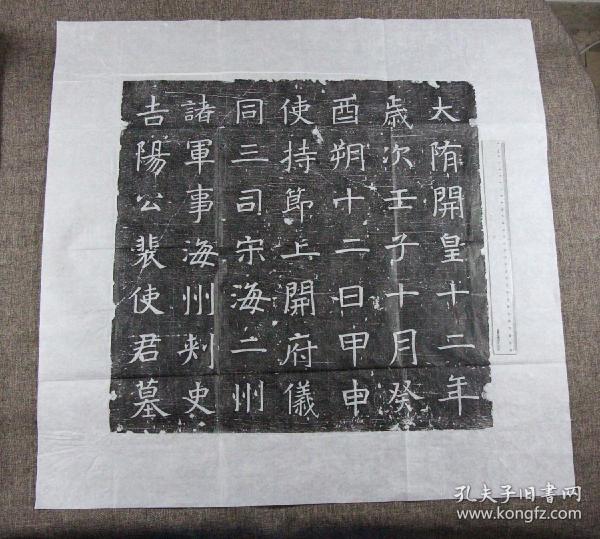 大隋開皇十二年
歲次壬子十月癸
酉朔十二日甲申
使持節上開府儀
同三司宋海二州
諸軍事海州刾史
吉陽公裴使君墓
孔夫子旧書网
www.kongfz.com